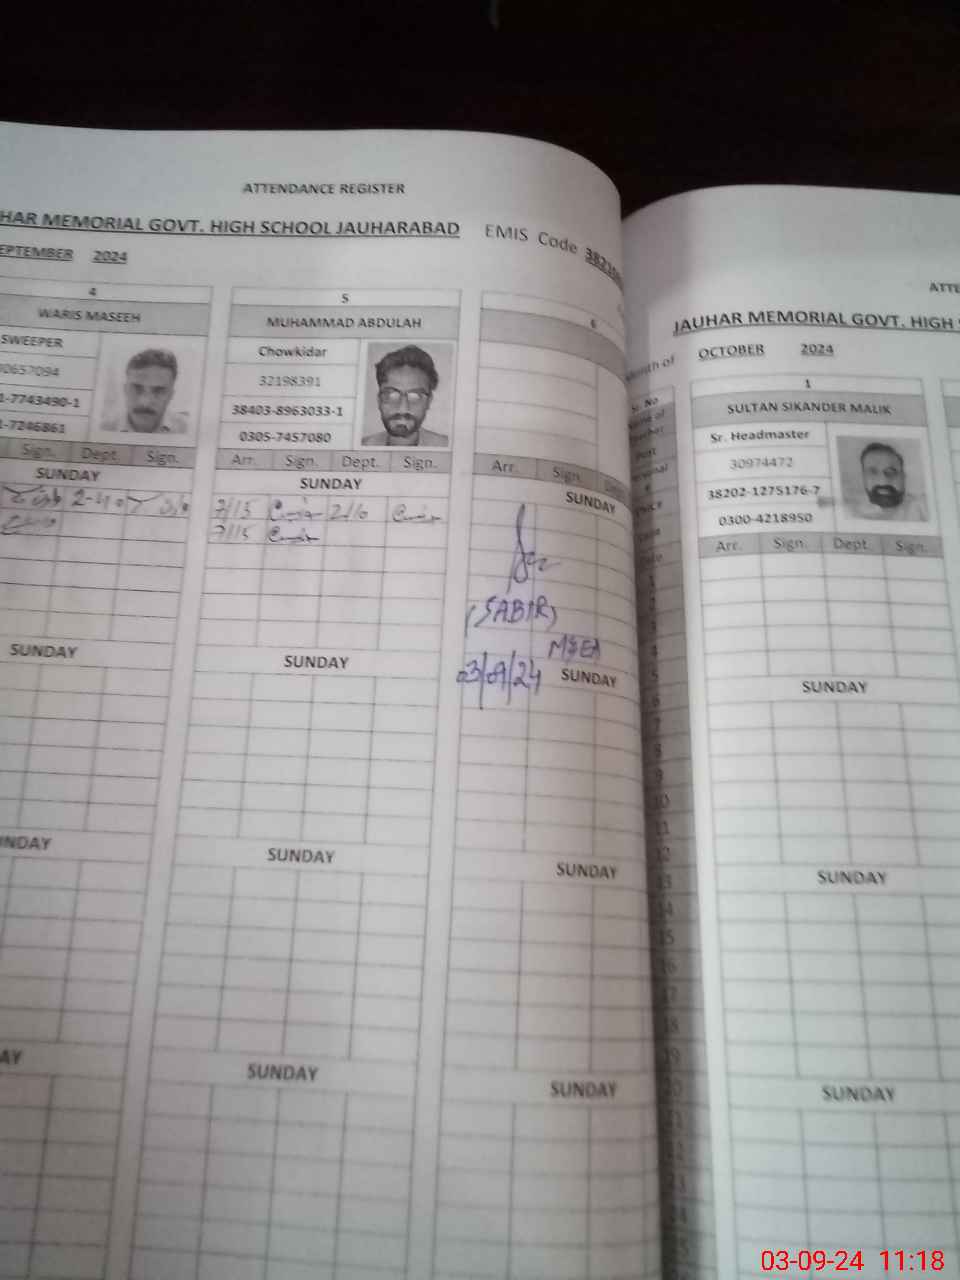 ATTENDANCE REGISTER
HAR MEMORIAL GOVT. HIGH SCHOOL JAUHARABAD EMIS Code
EPTEMBER 2024
4
WARIS MASEEH
SWEEPER
0657094
1-7743490-1
1-7246861
Sign. Dept. Sign.
SUNDAY
SUNDAY
NDAY
AY
5
MUHAMMAD ABDULAH
Chowkidar
32198391
38403-8963033-1
0305-7457080
Arr. Sign. Dept. Sign.
SUNDAY
7/15
7/15
SUNDAY
SUNDAY
SUNDAY
6
Arr. Sign.
SUNDAY
(SABIR)
MSEA
03/09/24
SUNDAY
SUNDAY
SUNDAY
ATTE
JAUHAR MEMORIAL GOVT. HIGH
OCTOBER 2024
1
SULTAN SIKANDER MALIK
Sr. Headmaster
30974472
38202-1275176-7
0300-4218950
Arr. Sign. Dept. Sign.
SUNDAY
SUNDAY
SUNDAY
03-09-24 11:18